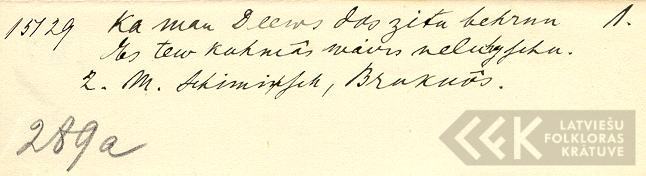 15729 Ka man Deews dos zitu behrnu 1.
Es tew kuhmâs wairs nelugschu.
Z. M. Schimin̨sch, Bruknâs.
289a
LATVIEŠU
FOLKLORAS
KRĀTUVE